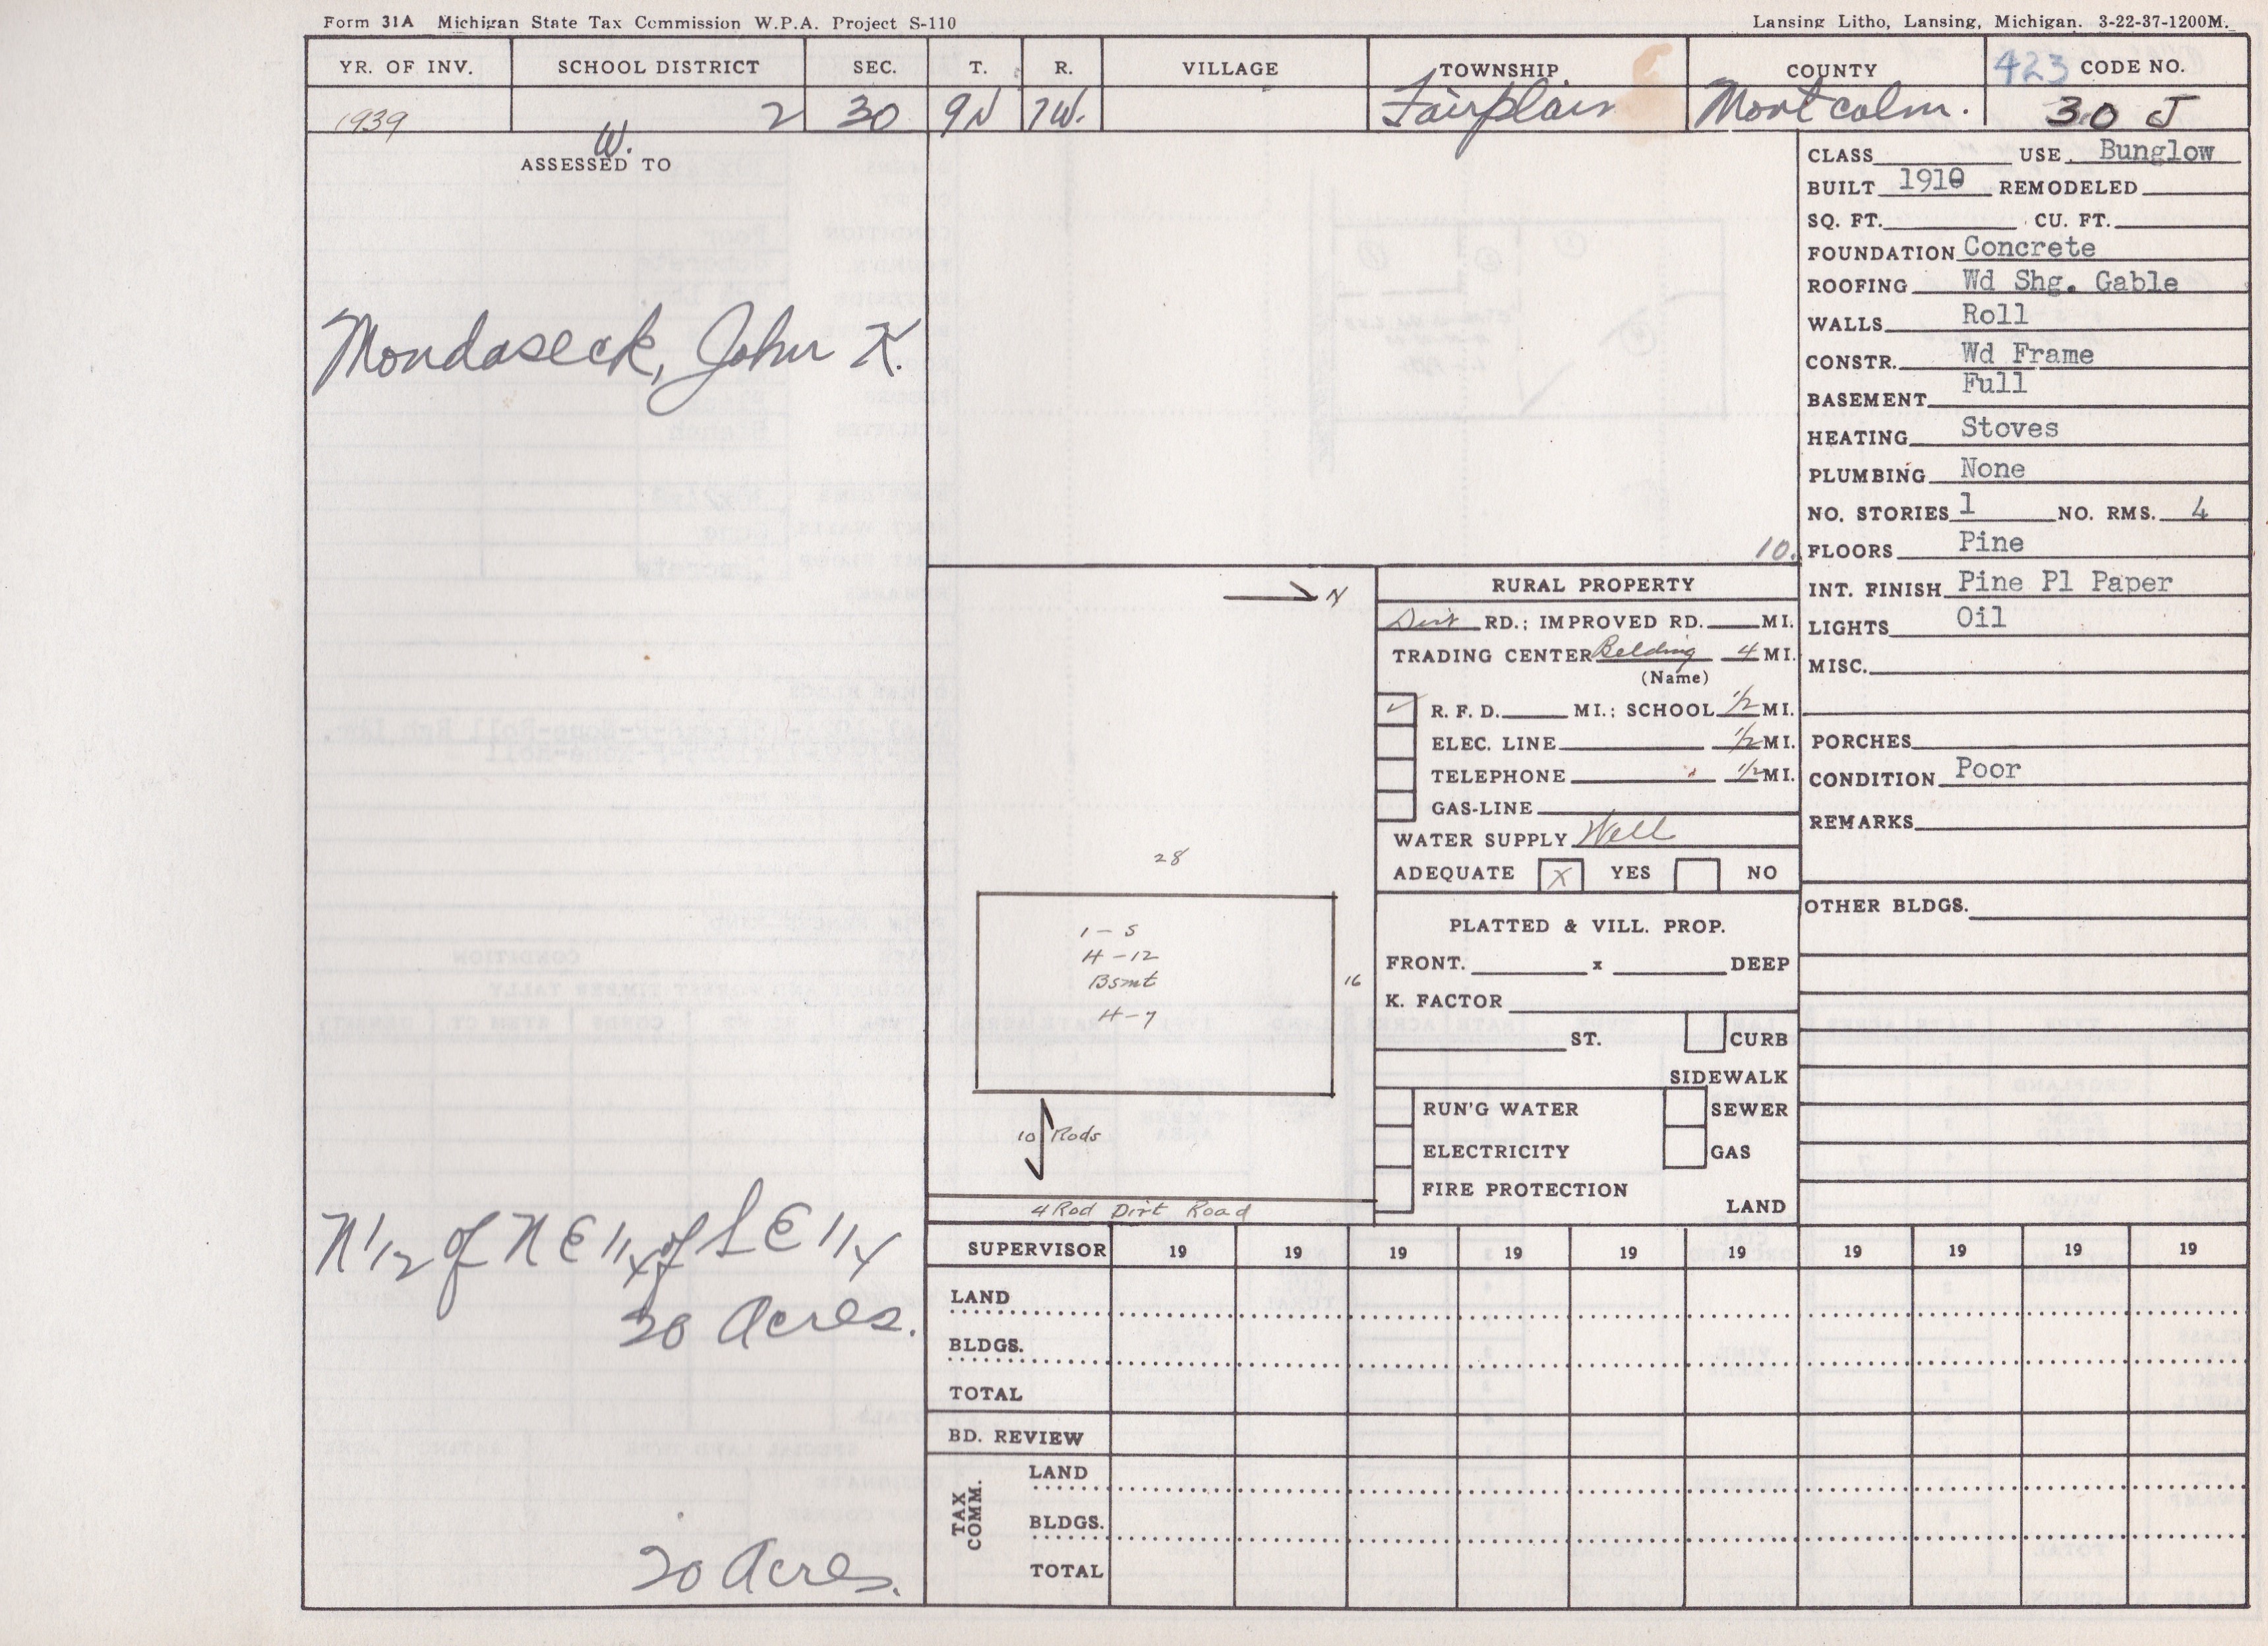 Form 31A Michigan State Tax Commission W.P.A. Project S-110
Lansing Litho, Lansing, Michigan. 3-22-37-1200M.
YR. OF INV. SCHOOL DISTRICT SEC. T. R. VILLAGE TOWNSHIP COUNTY 423 CODE NO.
1939 2 30 9N 7W. Fairplain Montcalm. 30 J
W.
ASSESSED TO
Mondaseck, John K.
N 1/2 of N E 1/4 of S E 1/4
20 Acres.
20 Acres.
10.
N
28
1-S
H-12
Bsmt
H-7
16
10 Rods
4 Rod Dirt Road
RURAL PROPERTY
Dirt RD.; IMPROVED RD. MI.
TRADING CENTER Belding 4 MI.
(Name)
✓ R. F. D. MI.; SCHOOL 1/2 MI.
ELEC. LINE 1/2 MI.
TELEPHONE 1/2 MI.
GAS-LINE
WATER SUPPLY Well
ADEQUATE X YES NO
PLATTED & VILL. PROP.
FRONT. x DEEP
K. FACTOR
ST. CURB
SIDEWALK
RUN'G WATER SEWER
ELECTRICITY GAS
FIRE PROTECTION
LAND
CLASS USE Bunglow
BUILT 1910 REMODELED
SQ. FT. CU. FT.
FOUNDATION Concrete
ROOFING Wd Shg. Gable
WALLS Roll
CONSTR. Wd Frame
BASEMENT Full
HEATING Stoves
PLUMBING None
NO. STORIES 1 NO. RMS. 4
FLOORS Pine
INT. FINISH Pine Pl Paper
LIGHTS Oil
MISC.
PORCHES
CONDITION Poor
REMARKS
OTHER BLDGS.
SUPERVISOR 19 19 19 19 19 19 19 19 19 19
LAND
BLDGS.
TOTAL
BD. REVIEW
TAX COMM.
LAND
BLDGS.
TOTAL